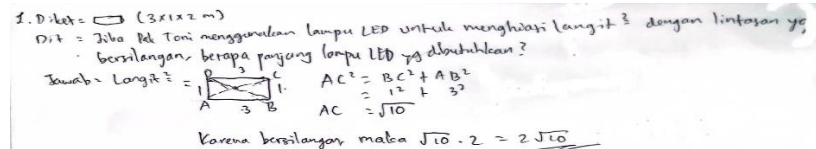 1. Diket = ▭ (3x1x2 m)
Dit = Jika Pak Toni menggunakan lampu LED untuk menghiasi langit² dengan lintasan yg
bersilangan, berapa panjang lampu LED yg dibutuhkan?
Jawab = Langit² =
D 3 C
1 1
A 3 B
AC² = BC² + AB²
= 1² + 3²
AC = √10
Karena bersilangan maka √10 . 2 = 2√10